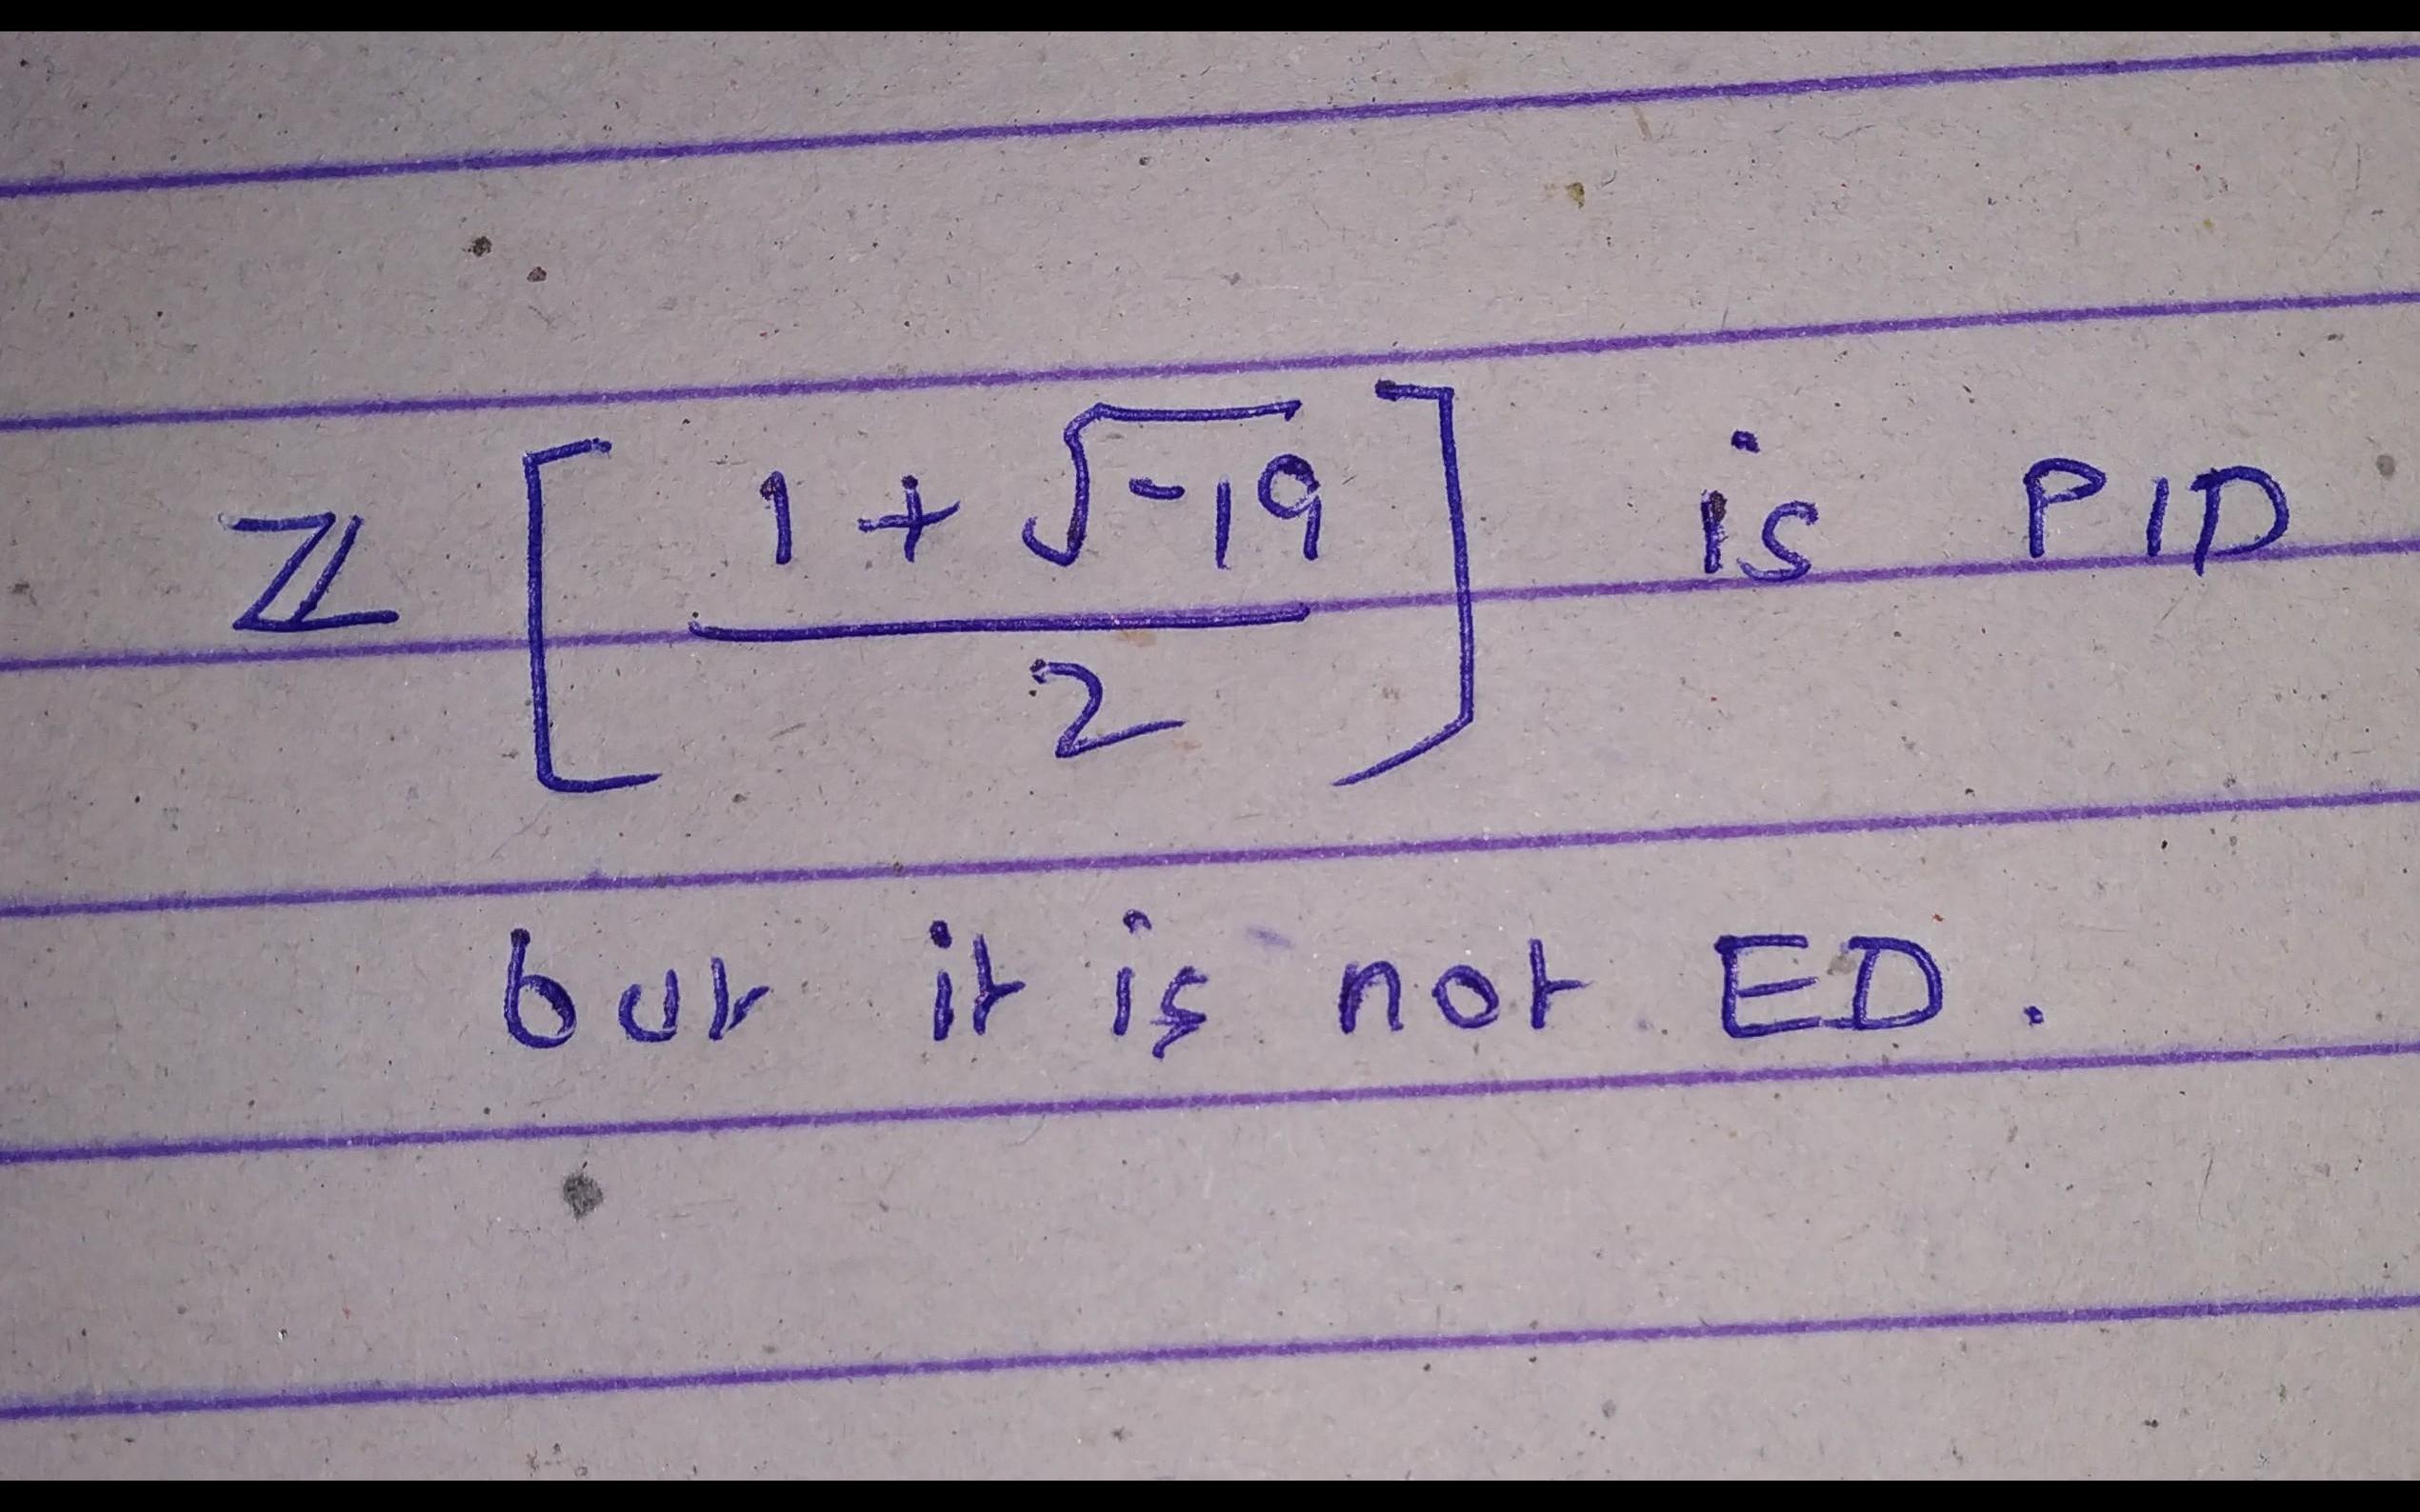 ℤ [ (1 + √-19) / 2 ] is PID
but it is not ED.